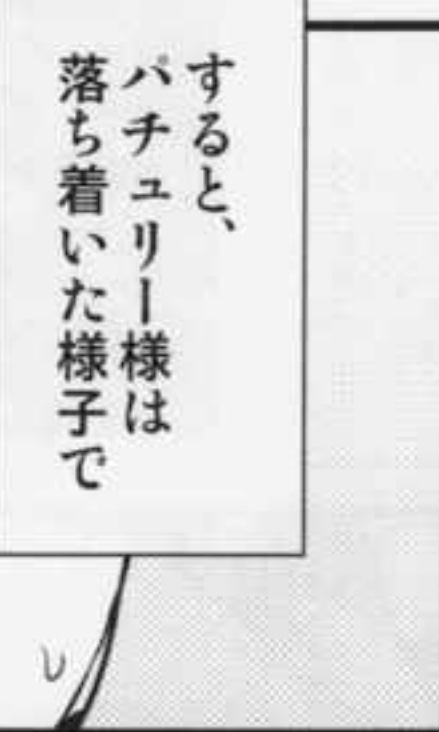 すると、
パチュリー様は
落ち着いた様子で